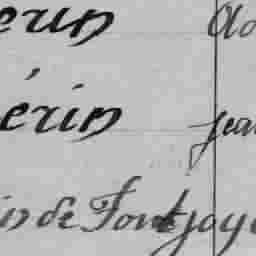 erin ao
érin jea
in de Fontjoy